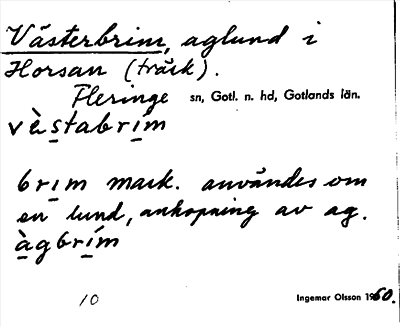 Västerbrim, aglund i
Horsan (träsk).
Fleringe sn, Gotl. n. hd, Gotlands län.
vὲstabrím
brim mask. användes om
en lund, anhopning av ag.
àgbrím
10 Ingemar Olsson 1960.